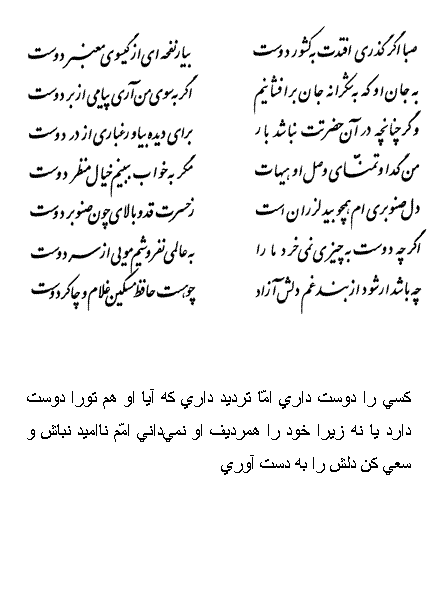 صبا اگر گذری افتدت به کشور دوست بیار نفحه ای از گیسوی معنبر دوست
به جان او که به شکرانه جان برافشانم اگر به سوی من آری پیامی از بر دوست
وگر چنانچه در آن حضرتت نباشد بار برای دیده بیاور غباری از در دوست
من گدا و تمنای وصل او هیهات مگر به خواب ببینم خیال منظر دوست
دل صنوبری ام همچو بید لرزان است ز حسرت قد و بالای چون صنوبر دوست
اگر چه دوست به چیزی نمی خرد ما را به عالمی نفروشیم مویی از سر دوست
چه باشد ار شود از بند غم دلش آزاد چو هست حافظ مسکین غلام و چاکر دوست
كسي را دوست داري امّا ترديد داري كه آيا او هم تورا دوست
دارد يا نه زيرا خود را همرديف او نمي‌داني امّم نااميد نباش و
سعي كن دلش را به دست آوري